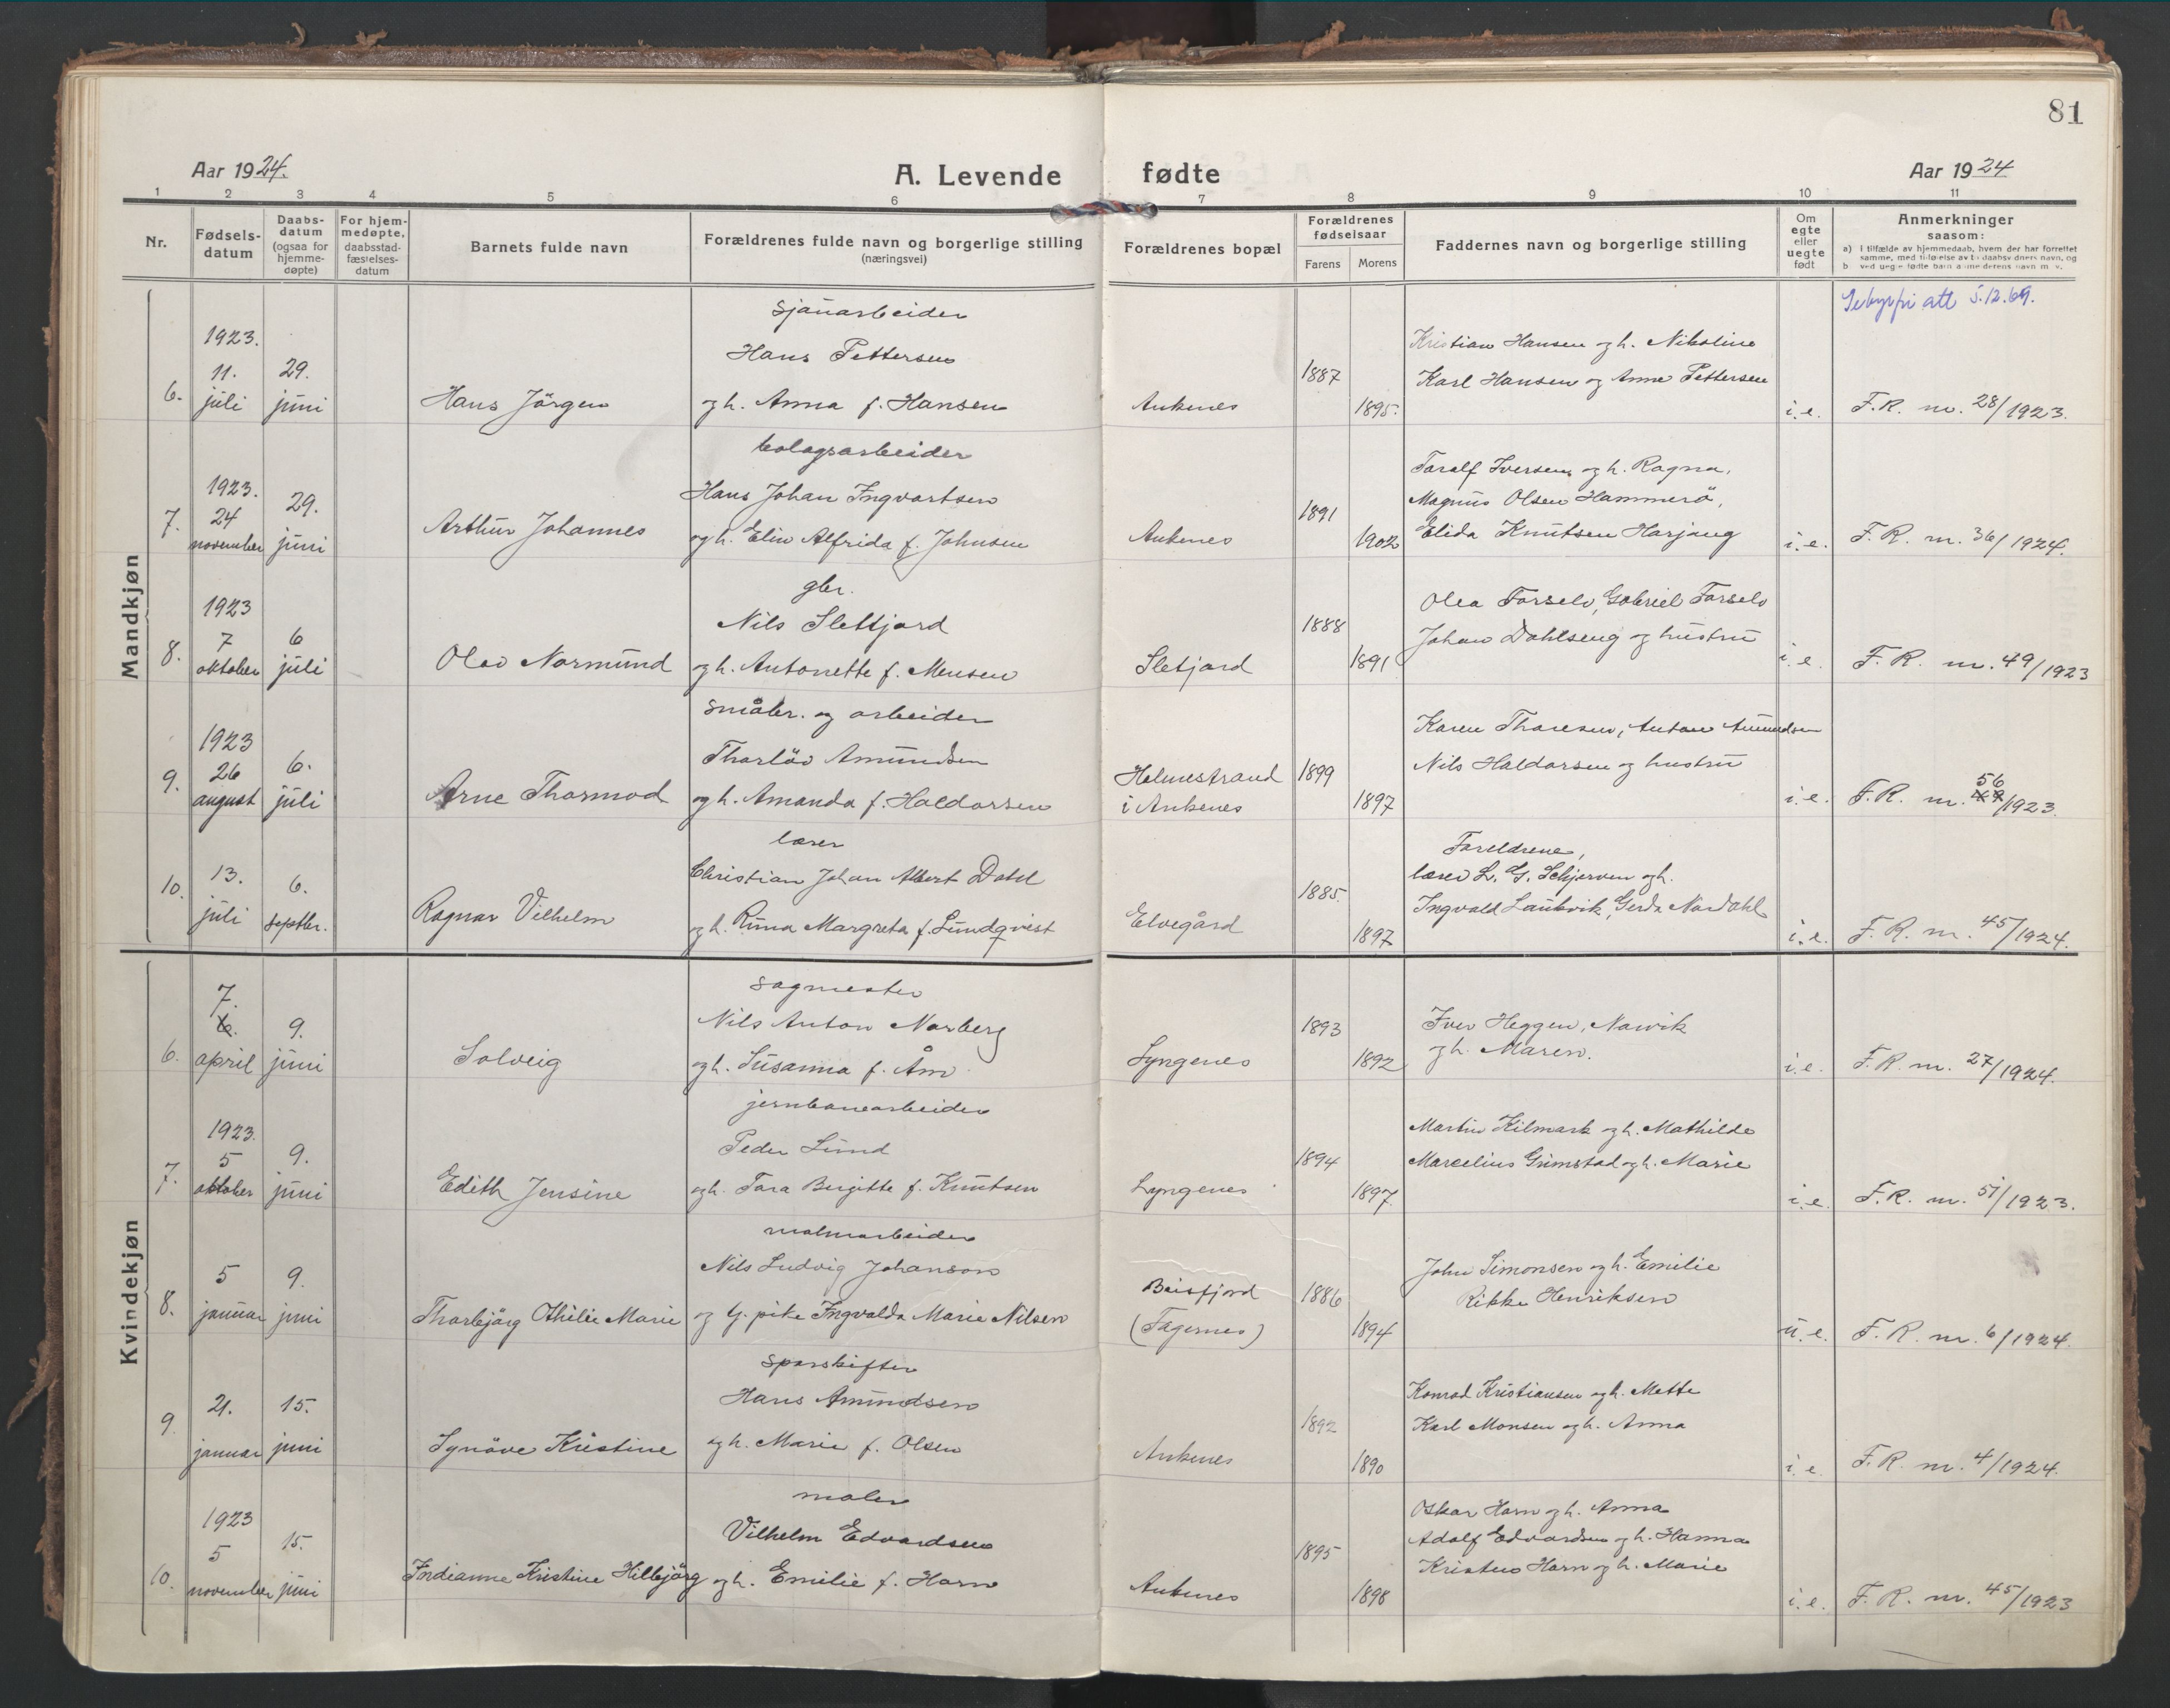 81
Aar 1924.
A. Levende fødte
Aar 1924
1 2 3 4 5 6 7 8 9 10 11
Nr.
Fødsels-
datum
Daabs-
datum
(ogsaa for
hjemme-
døpte)
For hjem-
medøpte,
daabsstad-
fæstelses-
datum
Barnets fulde navn
Forældrenes fulde navn og borgerlige stilling
(næringsvei)
Forældrenes bopæl
Forældrenes
fødselsaar
Farens Morens
Faddernes navn og borgerlige stilling
Om
egte
eller
uegte
født
Anmerkninger
saasom:
a) i tilfælde av hjemmedaab, hvem der har forrettet
samme, med tilføielse av to daabsvidners navn, og
b ved uegte fødte barn anmelderens navn m. v.
Mandkjøn
6.
1923.
11.
juli
29.
juni
Hans Jörgen
sjauarbeider
Hans Pettersen
og h. Anna f. Hansen
Ankenes
1887
1895.
Kristian Hansen og h. Nikoline
Karl Hansen og Anne Pettersen
i.e.
att 5.12.69.
F.R. nr. 28/1923.
7.
1923.
24
november
29.
juni
Arthur Johannes
bolagsarbeider
Hans Johan Ingvartsen
og h. Elin Alfrida f. Johnsen
Ankenes
1891
1902
Toralf Iversen og h. Ragna,
Magnus Olsen Hammerö,
Elida Knutsen Harjang
i.e.
F.R. nr. 36/1924.
8.
1923
7
oktober
6
juli
Olav Normund
gbr.
Nils Slettjord
og h. Antonette f. Mensen
Sletjord
1888
1891
Olea Forselv, Gabriel Forselv
Johan Dahlseng og hustru
i.e.
F.R. nr. 49/1923
9.
1923
26
august
6.
juli
Arne Thormod
småbr. og arbeider
Thorlöv Amundsen
og h. Amanda f. Haldorsen
Holmestrand
i Ankenes
1899
1897
Karen Thoresen, Anton Amundsen
Nils Haldorsen og hustru
i.e.
56
F.R. nr. 49/1923.
10.
13.
juli
6.
septbr.
Ragnar Vilhelm
lærer
Christian Johan Albert Dahl
og h. Runa Margreta f. Lundqvist
Elvegård
1885.
1897
Foreldrene,
lærer L. G. Schjerven og h.
Ingvald Laukvik, Gerda Nordahl
i.e.
F.R. nr. 45/1924.
Kvindekjøn
6.
7.
6.
april
9.
juni
Solveig
sagmester
Nils Anton Norberg
og h. Susanna f. Åm
Lyngenes
1893
1892
Iver Heggen, Narvik
og h. Maren.
i.e.
F.R. nr. 27/1924.
7.
1923.
5
oktober
9.
juni
Edith Jensine
jernbanearbeider
Peder Lund
og h. Tora Birgitte f. Knutsen
Lyngenes
1894
1897.
Martin Kilmark og h. Mathilde
Marcelius Grimstad og h. Marie
i.e.
F.R. nr. 51/1923.
8.
5
januar
9.
juni
Thorbjörg Othilie Marie
malmarbeider
Nils Ludvig Johanson
og g. pike Ingvalda Marie Nilsen
Beisfjord
(Fagernes)
1886
1894
John Simonsen og h. Emilie
Rikke Henriksen
u.e.
F.R. nr. 6/1924.
9.
21.
januar
15.
juni
Synöve Kristine
sporskifter
Hans Amundsen
og h. Marie f. Olsen
Ankenes
1892
1890
Konrad Kristiansen og h. Mette
Karl Monsen og h. Anna
i.e.
F.R. nr. 4/1924.
10.
1923
5
november
15.
juni
Indianne Kristine Hillbjörg
maler
Vilhelm Edvardsen
og h. Emilie f. Horn
Ankenes
1895
1898
Oskar Horn og h. Anna
Adolf Edvardsen og h. Hanna
Kristen Horn og h. Marie
i.e.
F.R. nr. 45/1923